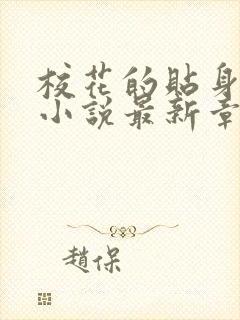 校花的貼身
小說最新章
趙保